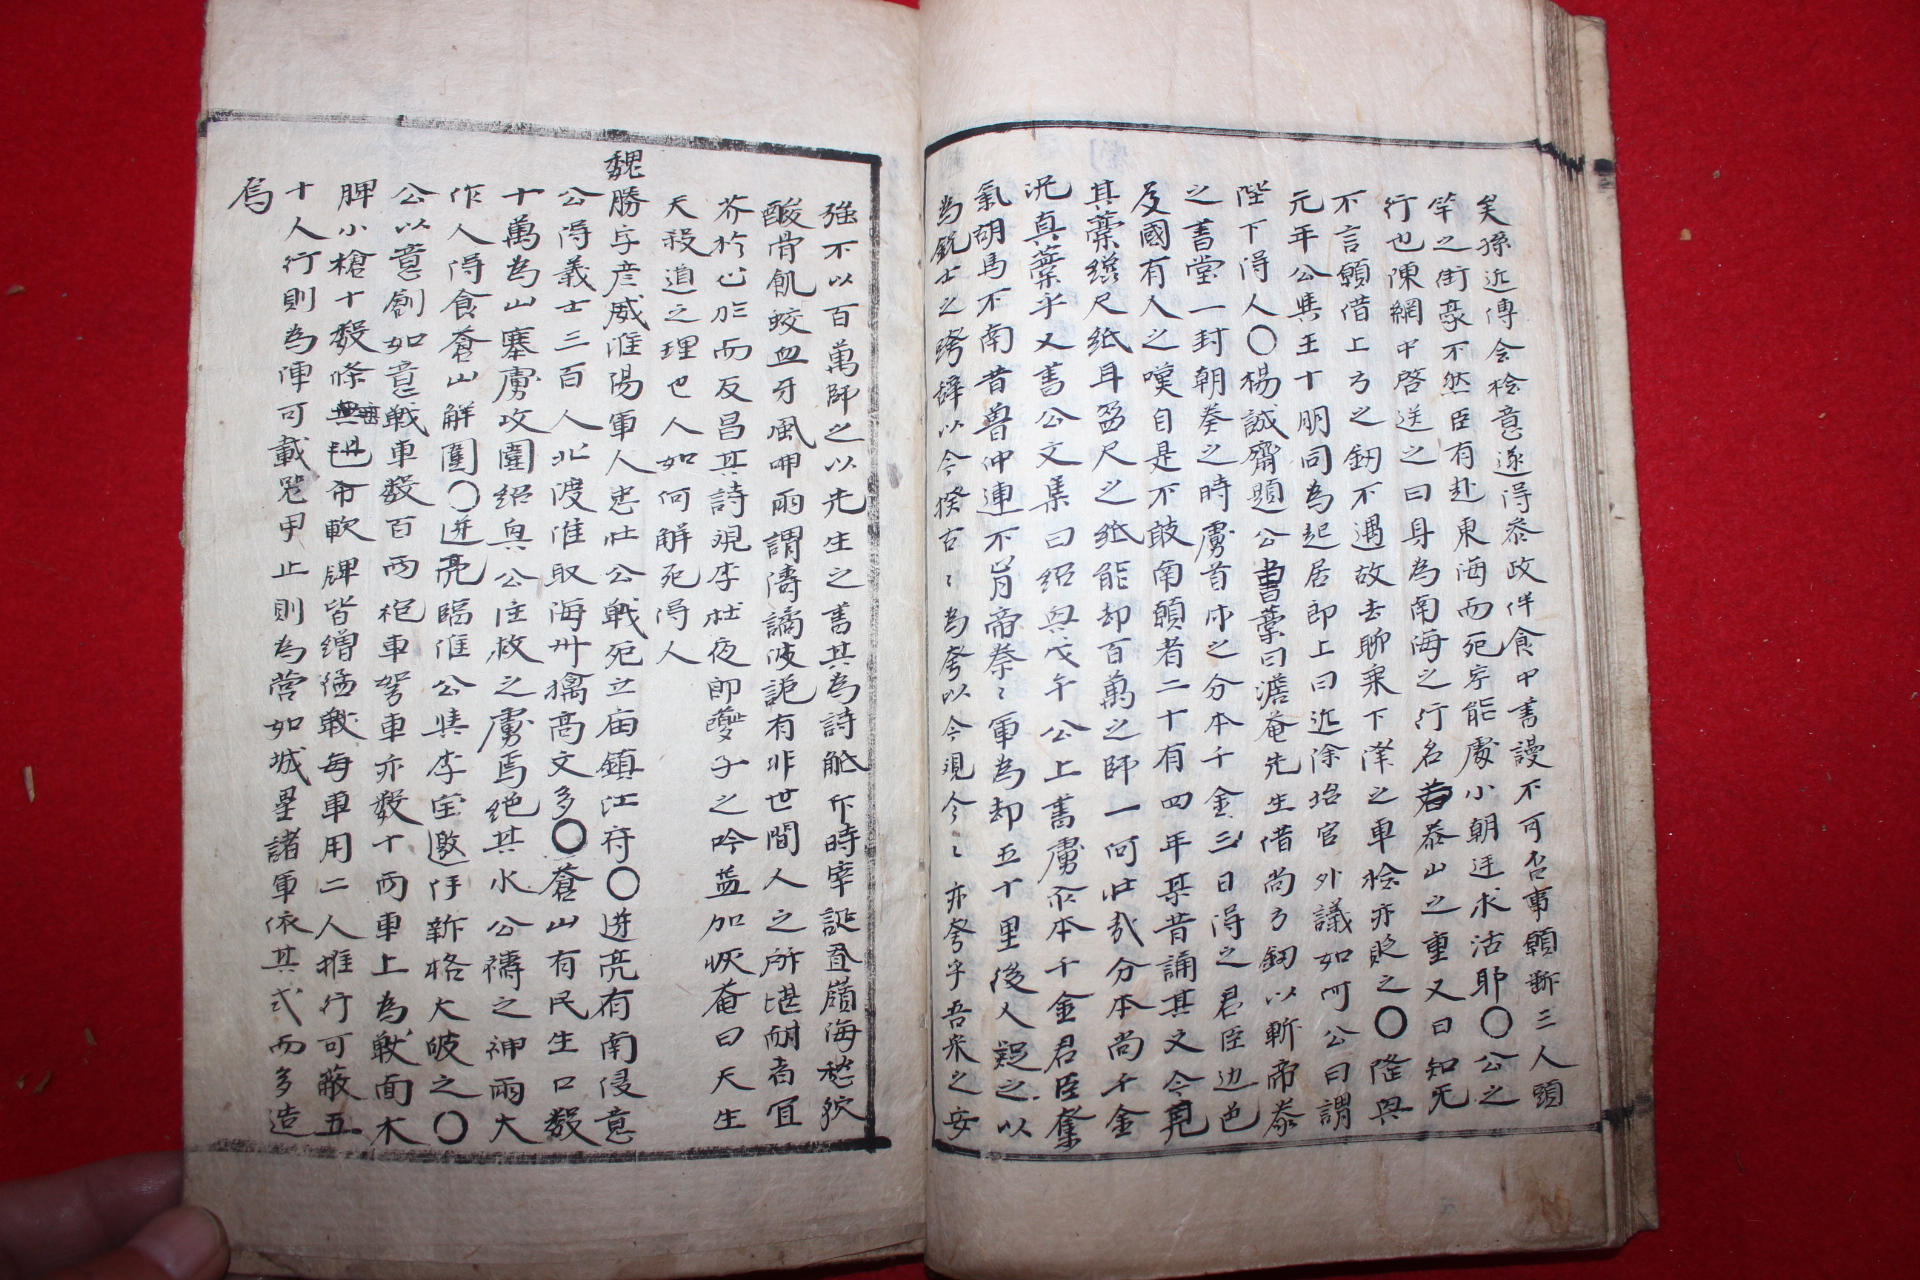 矣孫近傅会桧意遂得叅政伴食中書謾不可否事願斬三人頭
竿之街豪不然臣有赴東海而死字能處小朝廷求活耶○公之
行也陳網中啓送之曰身為南海之行名若泰山之重又曰知无
不言願借上方之釼不遇故去聊乘下澤之車桧亦貶之○隆興
元年公與王十朋同為起居郎上曰近除坮官外議如何公曰謂
陛下得人○楊誠齋題公書藁曰澹菴先生借尚方釼以斬帝秦
之書堂一封朝奏之時虜首市之分本千金三日得之君臣边色
及國有人之嘆自是不敢南願者二十有四年某昔誦其文今見
其藁縱尺紙耳盈尺之紙能却百萬之師一何壯哉分本尚千金
况真藁乎又書公文集曰紹興戊午公上書虜分本千金君臣奪
氣胡馬不南昔魯仲連不肯帝秦〻軍為却五十里後人疑之以
為說士之誇辭以今揆古〻為夸以今現今〻亦夸乎吾宋之安
強不以百萬師之以先生之書其為詩能斥時宰誕登嶺海愁狖
酸骨飢蛟血牙風呻雨謂濤譎波詭有非世間人之所堪耐者宜
芥於心而反昌其詩視李杜夜郎夔子之吟益加恢菴曰天生
天殺道之理也人如何解死得人
魏勝字彦威淮陽軍人忠壯公戰死立庙鎮江府○逆亮有南侵意
公得義士三百人北渡淮取海州擒高文多○蒼山有民生口数
十萬為山寨虜攻圍紹興公往救之虜焉絕其水公禱之神雨大
作人得食蒼山解圍○逆亮臨淮公與李宝邀擊新格大破之○
公以意創如意戰車数百兩砲車弩車亦数十兩車上為獸面木
脾小槍十数條垂毡布軟牌皆繒繡戰每車用二人推行可蔽五
十人行則為陣可載器甲止則為營如城壘諸軍依其式而多造
焉